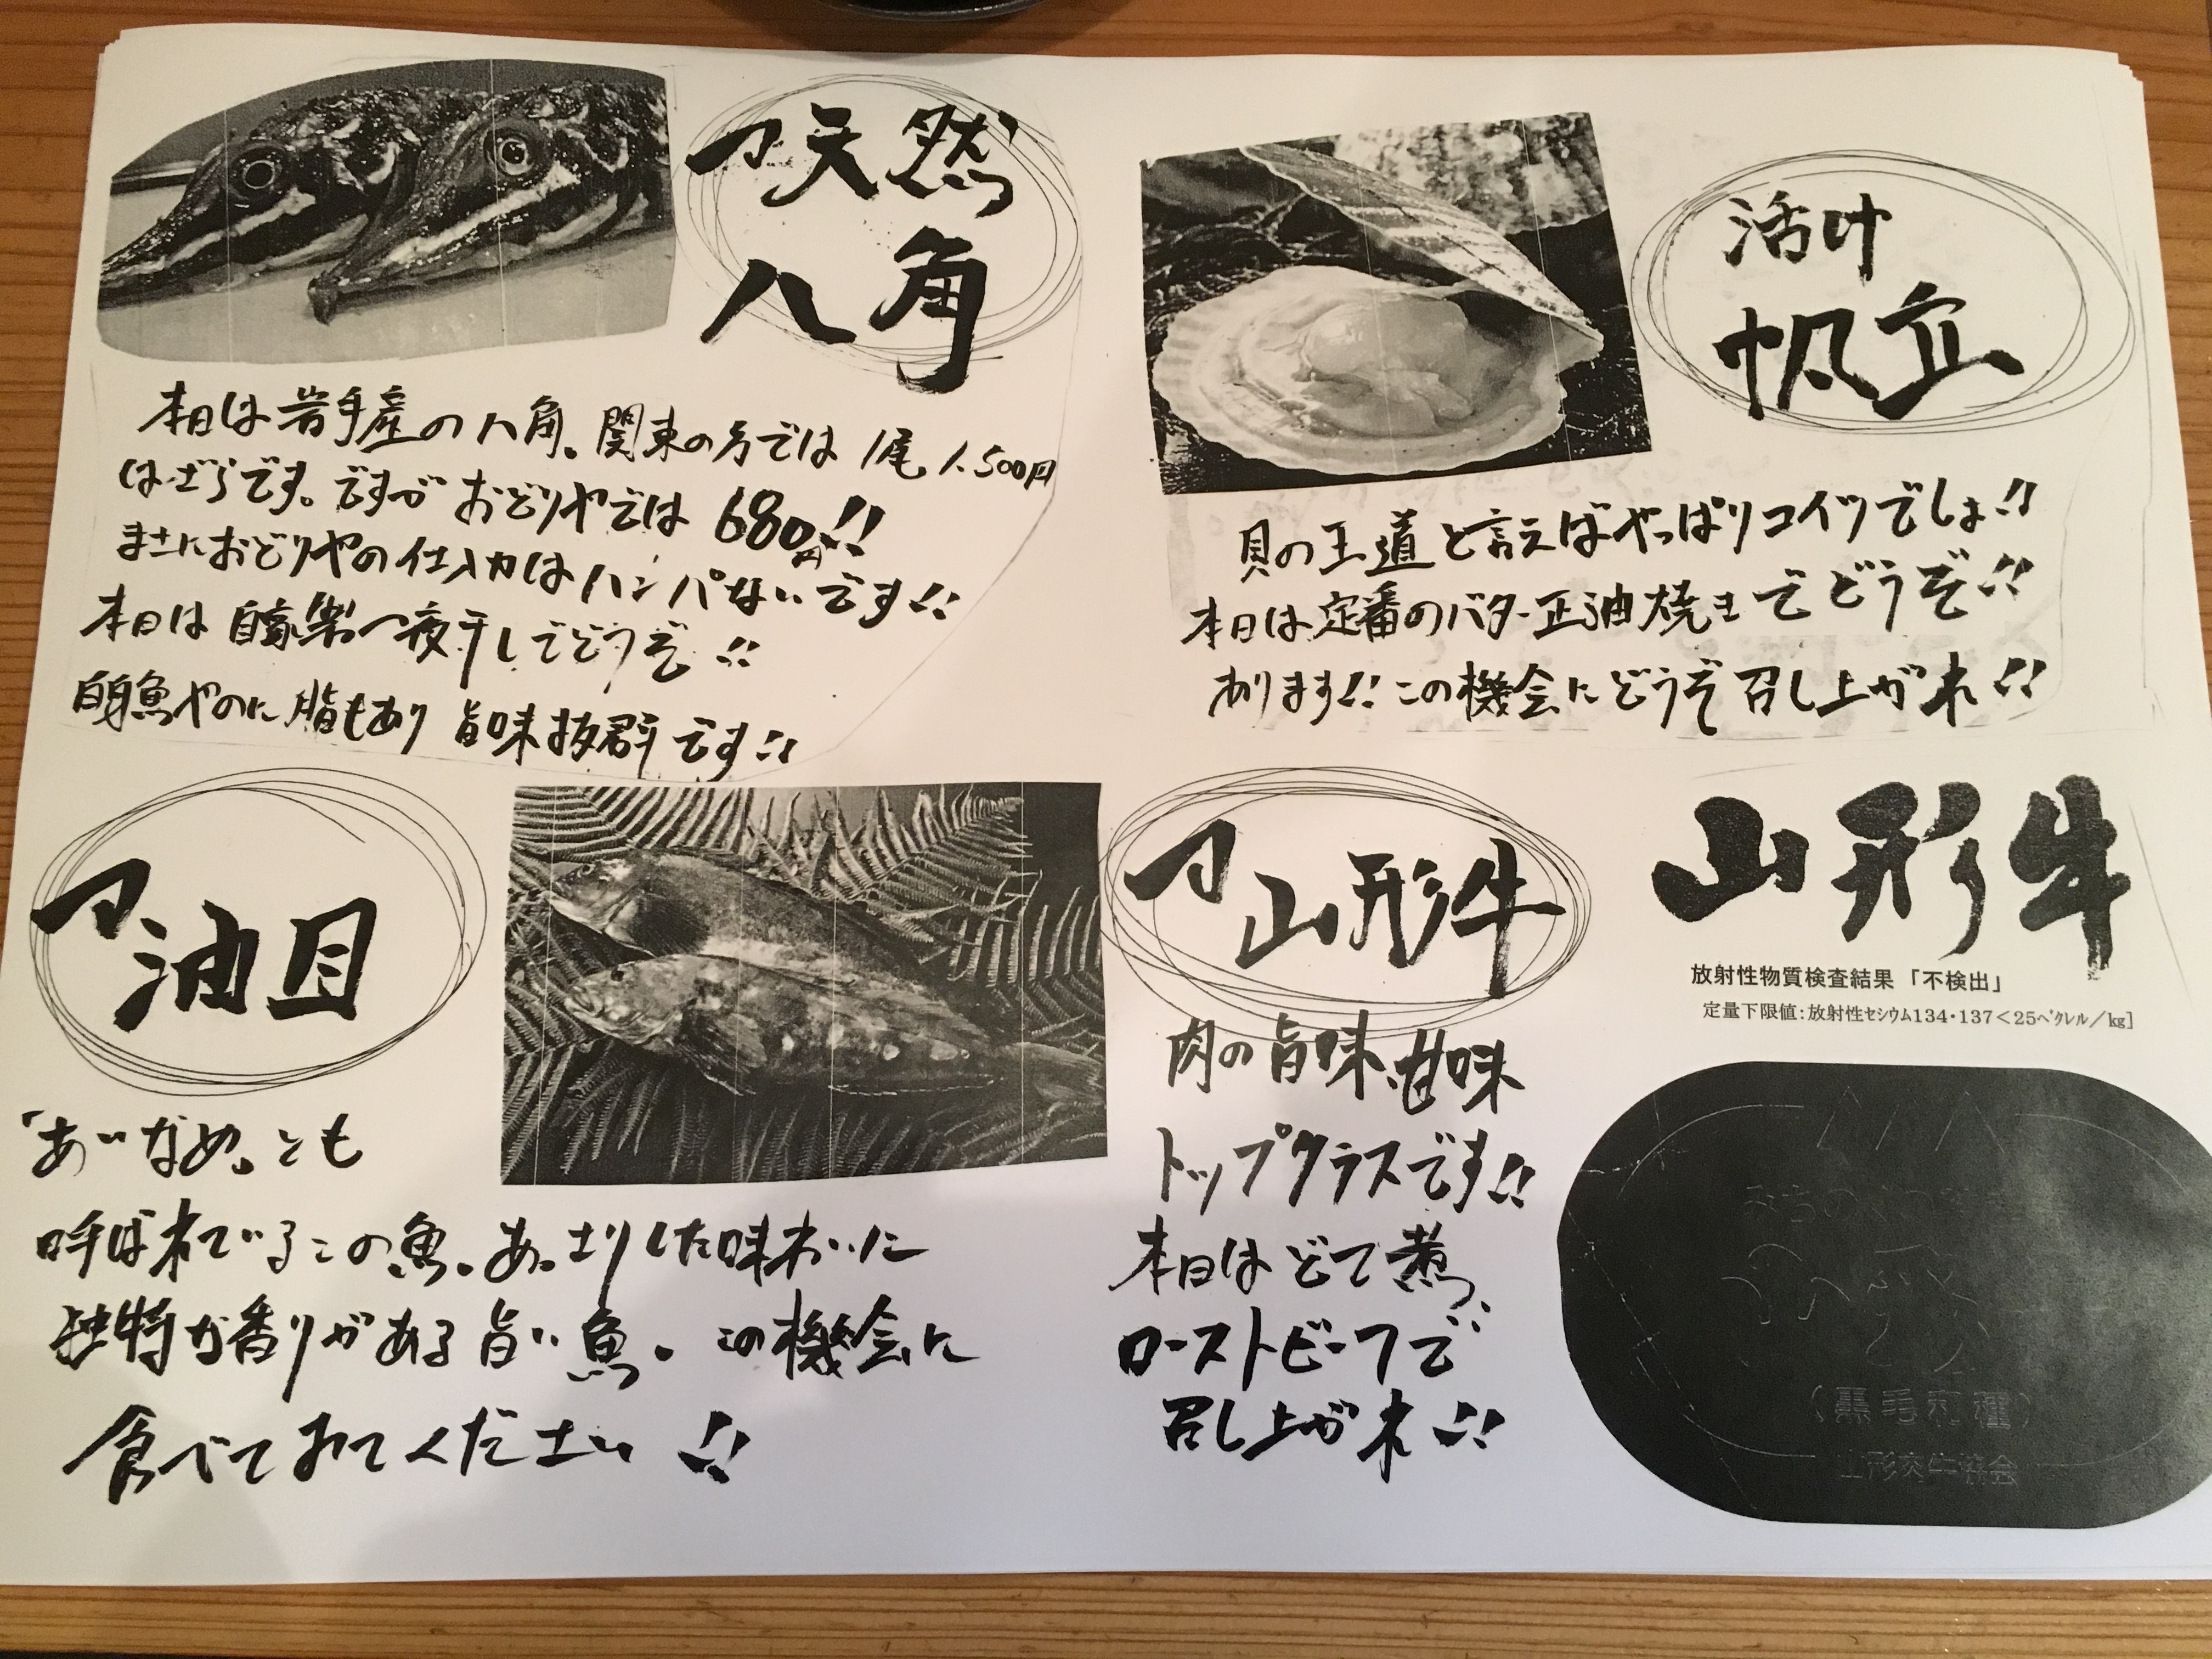 天然
八角
本日は岩手産の八角。関東の方では1尾1.500円
はざらです。ですがおどりやでは680円!!
まさにおどりやの仕入力はハンパないです!!
本日は自家製一夜干しでどうぞ!!
白身魚やのに脂もあり旨味抜群です!!
活け
帆立
貝の王道と言えばやっぱりコイツでしょ!!
本日は定番のバター正油焼きでどうぞ!!
あります!!この機会にどうぞ召し上がれ!!
油目
「あいなめ」とも
呼ばれているこの魚。あっさりした味わいに
独特な香りがある旨い魚。この機会に
食べてみてください!!
山形牛
肉の旨味、甘味
トップクラスです!!
本日はどて煮、
ローストビーフで
召し上がれ!!
山形牛
放射性物質検査結果「不検出」
定量下限値:放射性セシウム134・137<25ベクレル/kg]
(黒毛和種)
山形肉牛協会